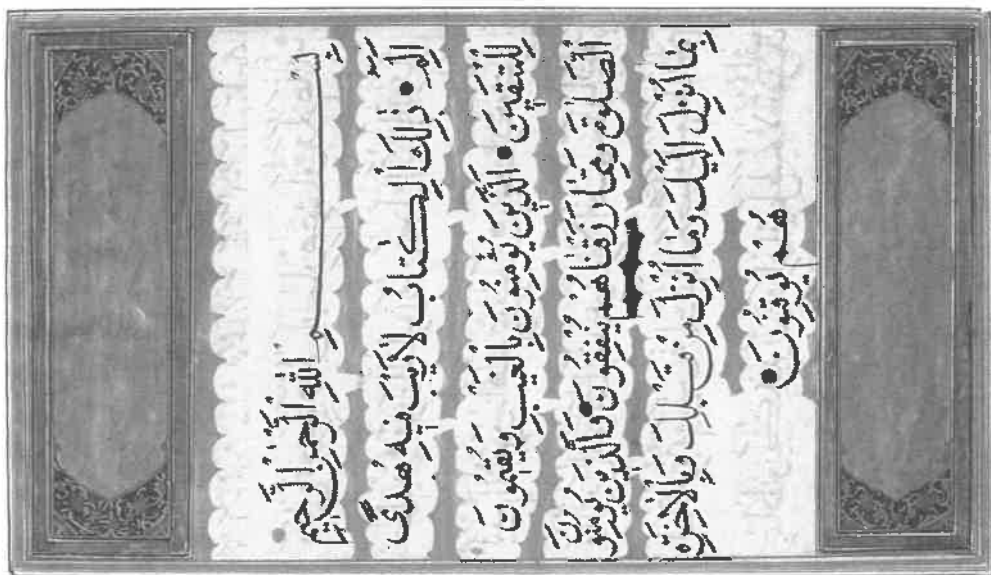 بِسْمِ اللّٰهِ الرَّحْمٰنِ الرَّحِيمِ
الٓمٓ ● ذٰلِكَ الْكِتَابُ لَا رَيْبَ فِيهِ هُدًى
لِلْمُتَّقِينَ ● الَّذِينَ يُؤْمِنُونَ بِالْغَيْبِ وَيُقِيمُونَ
الصَّلٰوةَ وَمِمَّا رَزَقْنَاهُمْ يُنْفِقُونَ ● وَالَّذِينَ يُؤْمِنُونَ
بِمَا اُنْزِلَ اِلَيْكَ وَمَا اُنْزِلَ مِنْ قَبْلِكَ وَبِالْاٰخِرَةِ
هُمْ يُوقِنُونَ ●